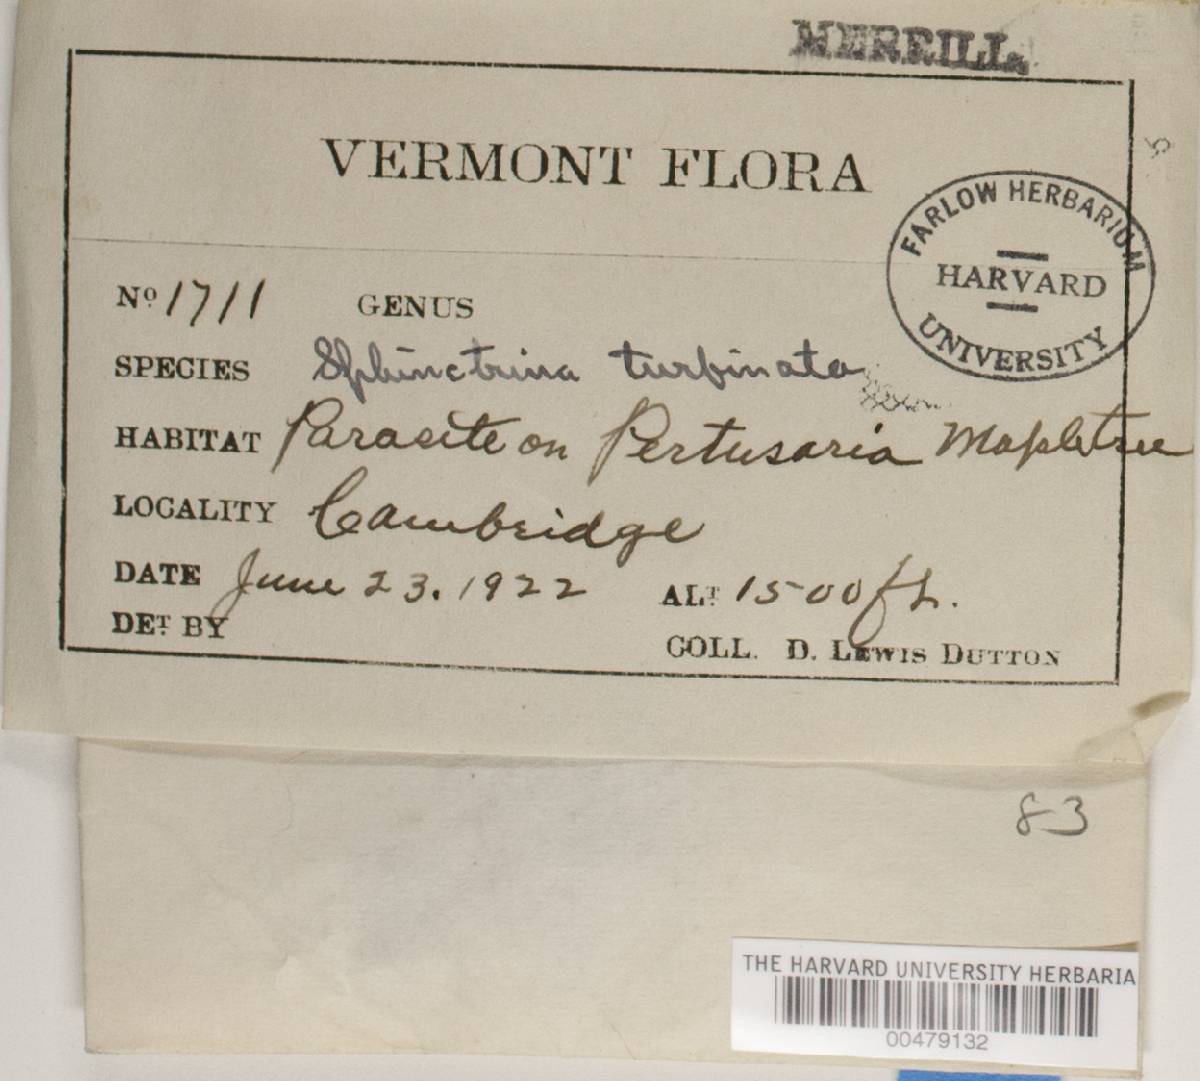 MERRILL.
VERMONT FLORA
FARLOW HERBARIUM
HARVARD
UNIVERSITY
No 1711 GENUS
SPECIES Sphinctrina turbinata
HABITAT Parasite on Pertusaria Mapletree
LOCALITY Cambridge
DATE June 23. 1922 ALT 1500 ft.
DET BY
COLL. D. LEWIS DUTTON
83
THE HARVARD UNIVERSITY HERBARIA
00479132